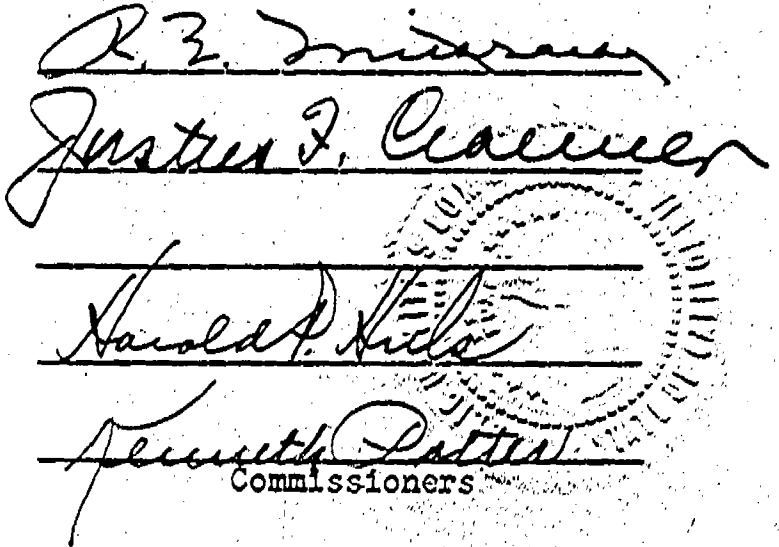 R. E. Mittelstaedt
Justus F. Craemer
Harold P. Huls
Kenneth Potter
Commissioners